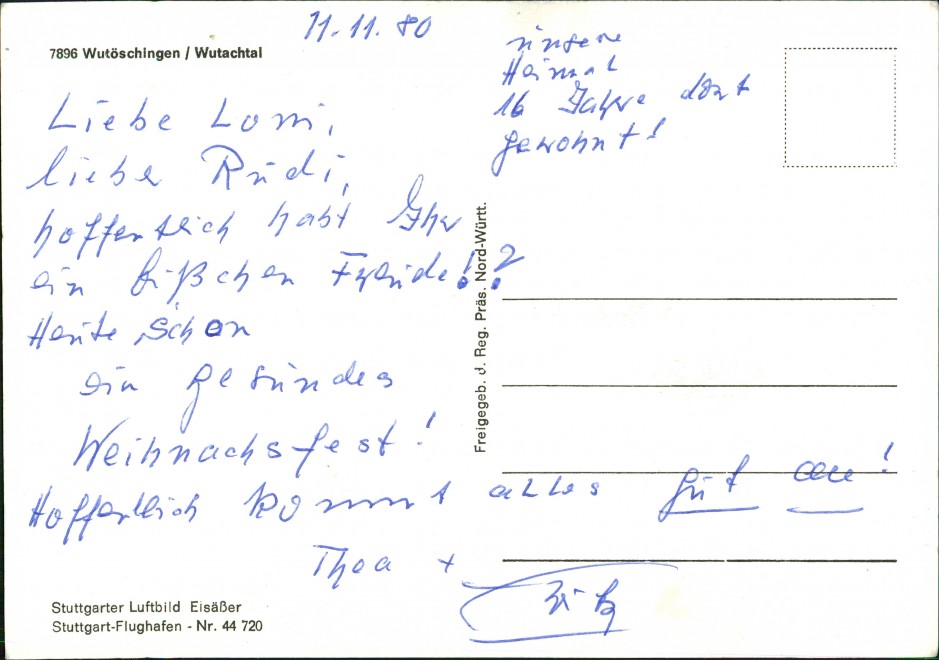 7896 Wutöschingen / Wutachtal
11.11.80
Liebe Loni,
lieber Rudi,
hoffentlich habt Ihr
ein bißchen Freude!?
Heute schon
ein gesundes
Weihnachsfest!
Hoffentlich kommt alles gut an!
Thea +
unsere
Heimat
16 Jahre dort
gewohnt!
Freigegeb. d. Reg. Präs. Nord-Württ.
Stuttgarter Luftbild Eisäßer
Stuttgart-Flughafen - Nr. 44 720